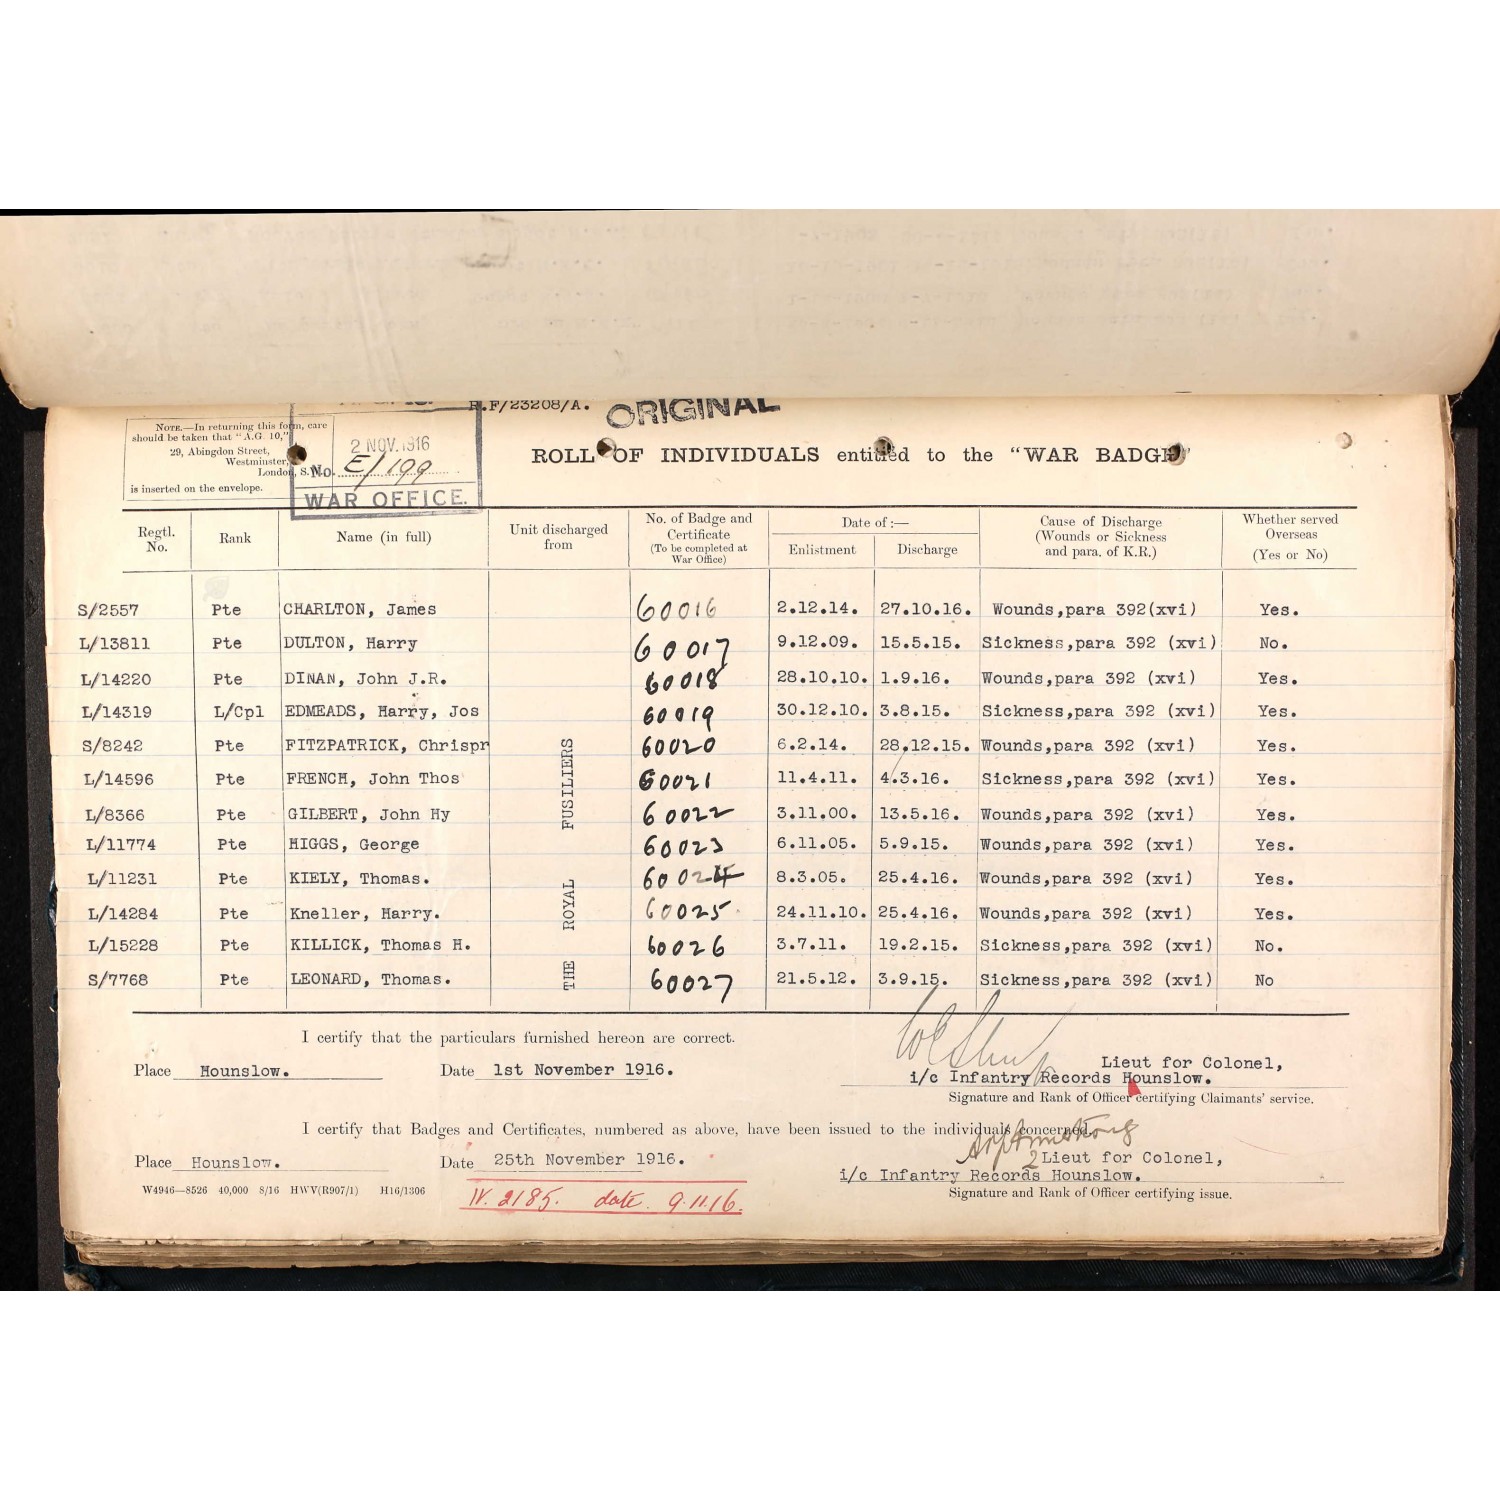 R.F/23208/A.
ORIGINAL
NOTE.—In returning this form, care
should be taken that "A.G. 10,"
29, Abingdon Street,
Westminster,
London, S.W.
is inserted on the envelope.
2 NOV. 1916
No. E/199
WAR OFFICE.
ROLL OF INDIVIDUALS entitled to the "WAR BADGE"
Regtl. No. Rank Name (in full) Unit discharged from No. of Badge and Certificate (To be completed at War Office) Date of :— Enlistment Discharge Cause of Discharge (Wounds or Sickness and para. of K.R.) Whether served Overseas (Yes or No)
S/2557 Pte CHARLTON, James 60016 2.12.14. 27.10.16. Wounds,para 392(xvi) Yes.
L/13811 Pte DULTON, Harry 60017 9.12.09. 15.5.15. Sickness,para 392 (xvi) No.
L/14220 Pte DINAN, John J.R. 60018 28.10.10. 1.9.16. Wounds,para 392 (xvi) Yes.
L/14319 L/Cpl EDMEADS, Harry, Jos 60019 30.12.10. 3.8.15. Sickness,para 392 (xvi) Yes.
S/8242 Pte FITZPATRICK, Chrispr 60020 6.2.14. 28.12.15. Wounds,para 392 (xvi) Yes.
L/14596 Pte FRENCH, John Thos 60021 11.4.11. 4.3.16. Sickness,para 392 (xvi) Yes.
L/8366 Pte GILBERT, John Hy 60022 3.11.00. 13.5.16. Wounds,para 392 (xvi) Yes.
L/11774 Pte HIGGS, George 60023 6.11.05. 5.9.15. Wounds,para 392 (xvi) Yes.
L/11231 Pte KIELY, Thomas. 60024 8.3.05. 25.4.16. Wounds,para 392 (xvi) Yes.
L/14284 Pte Kneller, Harry. 60025 24.11.10. 25.4.16. Wounds,para 392 (xvi) Yes.
L/15228 Pte KILLICK, Thomas H. 60026 3.7.11. 19.2.15. Sickness,para 392 (xvi) No.
S/7768 Pte LEONARD, Thomas. 60027 21.5.12. 3.9.15. Sickness,para 392 (xvi) No
THE ROYAL FUSILIERS
I certify that the particulars furnished hereon are correct.
Place Hounslow. Date 1st November 1916. Lieut for Colonel,
i/c Infantry Records Hounslow.
Signature and Rank of Officer certifying Claimants' service.
I certify that Badges and Certificates, numbered as above, have been issued to the individuals concerned.
Armstrong
Place Hounslow. Date 25th November 1916. 2 Lieut for Colonel,
i/c Infantry Records Hounslow.
Signature and Rank of Officer certifying issue.
W4946—8526 40,000 8/16 HWV(R907/1) H16/1306
W. 2185. date. 9.11.16.